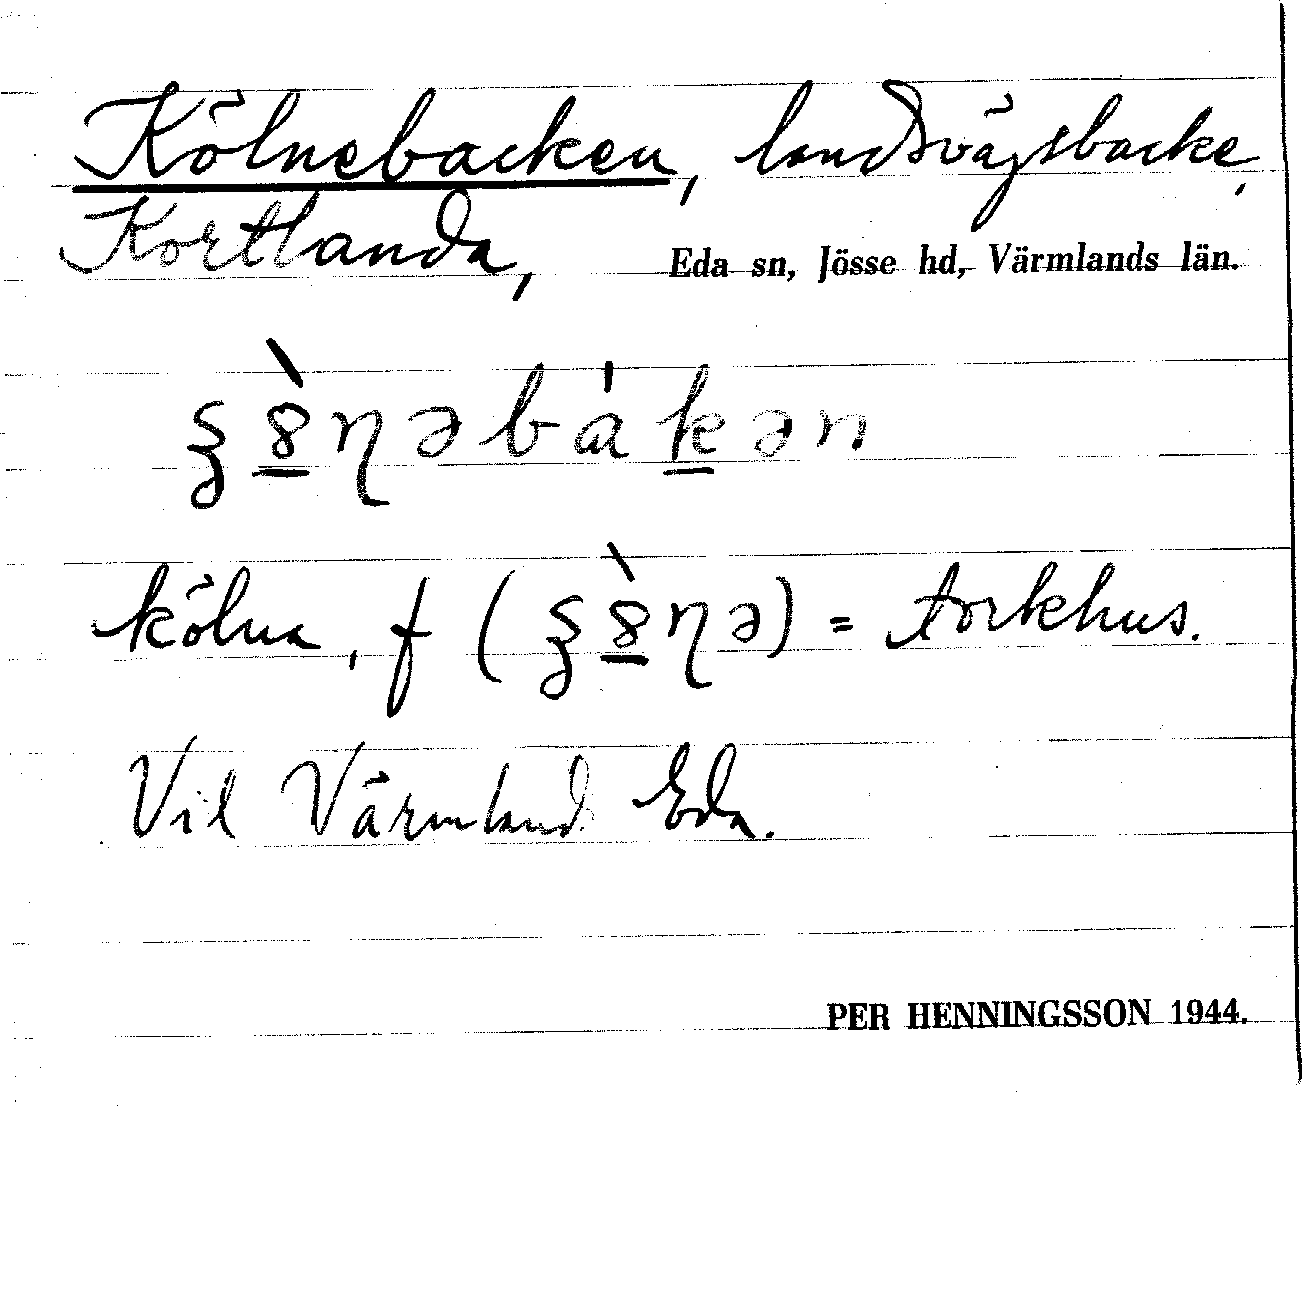 Kölnebacken, landsvägsbacke,
Kortlanda, Eda sn, Jösse hd, Värmlands län.
ʒ8̲̀ɳəbàk̲ən
kölna, f (ʒ8̲̀ɳə) = torkhus.
Vil Värmland Eda.
PER HENNINGSSON 1944.